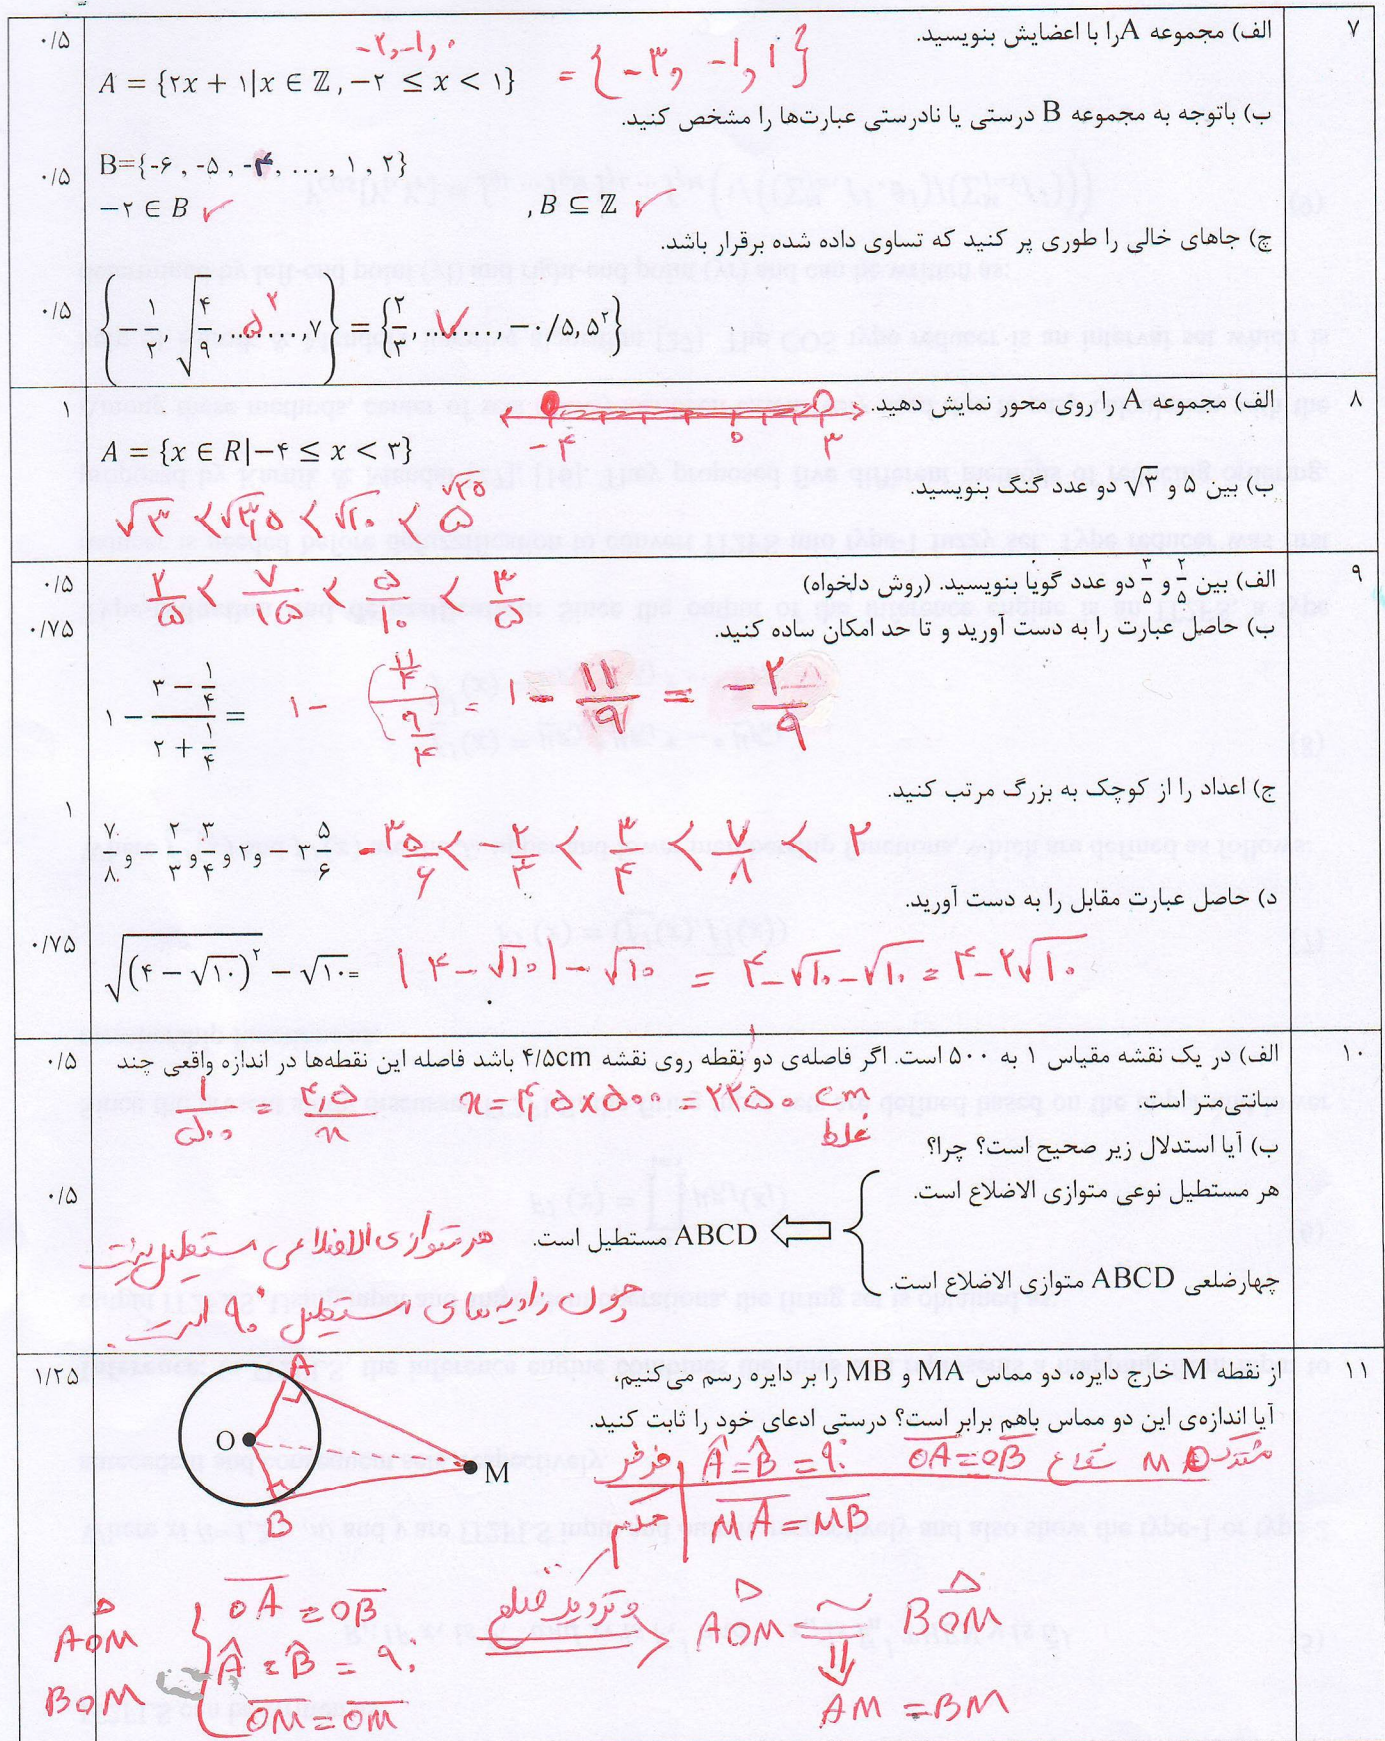 ۷ الف) مجموعه A را با اعضایش بنویسید. ۰/۵
-۲, -۱, ۰
A = {۲x + ۱|x ∈ ℤ, −۲ ≤ x < ۱} = {-۳, -۱, ۱}
ب) باتوجه به مجموعه B درستی یا نادرستی عبارت‌ها را مشخص کنید.
B={-۶ , -۵ , -۴ , ... , ۱ , ۲} ۰/۵
−۲ ∈ B ✓ , B ⊆ ℤ ✓
ج) جاهای خالی را طوری پر کنید که تساوی داده شده برقرار باشد.
{−۱/۲, √(۴/۹), ...۵^۲..., ۷} = {۲/۳, ...۷..., −۰/۵, ۵^۲} ۰/۵
۸ الف) مجموعه A را روی محور نمایش دهید. ۱
-۴ ۰ ۳
A = {x ∈ R|−۴ ≤ x < ۳}
ب) بین ۵ و √۳ دو عدد گنگ بنویسید.
√۲۵
√۳ < √۳,۵ < √۱۰ < ۵
۹ الف) بین ۲/۵ و ۳/۵ دو عدد گویا بنویسید. (روش دلخواه) ۰/۵
۲/۵ < ۷/۱۵ < ۵/۱۰ < ۳/۵
ب) حاصل عبارت را به دست آورید و تا حد امکان ساده کنید. ۰/۷۵
۱ − (۳ − ۱/۴)/(۲ + ۱/۴) = ۱ - ((۱۱/۴)/(۹/۴)) = ۱ - ۱۱/۹ = -۲/۹
ج) اعداد را از کوچک به بزرگ مرتب کنید. ۱
۷/۸ و ۲/۳ و ۳/۴ و ۲ و −۳ ۵/۶
-۳ ۵/۶ < ۲/۳ < ۳/۴ < ۷/۸ < ۲
د) حاصل عبارت مقابل را به دست آورید.
√((۴ − √۱۰)^۲) − √۱۰ = |۴ - √۱۰| - √۱۰ = ۴ - √۱۰ - √۱۰ = ۴ - ۲√۱۰ ۰/۷۵
۱۰ الف) در یک نقشه مقیاس ۱ به ۵۰۰ است. اگر فاصله‌ی دو نقطه روی نقشه ۴/۵cm باشد فاصله این نقطه‌ها در اندازه واقعی چند ۰/۵
سانتی‌متر است.
۱/۵۰۰ = ۴,۵/x x = ۴,۵ × ۵۰۰ = ۲۲۵۰ cm
غلط
ب) آیا استدلال زیر صحیح است؟ چرا؟
هر مستطیل نوعی متوازی الاضلاع است. ۰/۵
ABCD مستطیل است.
هر متوازی الاضلاعی مستطیل نیست
چهارضلعی ABCD متوازی الاضلاع است.
چون زاویه‌های مستطیل ۹۰° است.
۱۱ از نقطه M خارج دایره، دو مماس MA و MB را بر دایره رسم می‌کنیم، ۱/۲۵
آیا اندازه‌ی این دو مماس باهم برابر است؟ درستی ادعای خود را ثابت کنید.
A
O
M
B
فرض Â = B̂ = ۹۰° OA = OB شعاع MO مشترک
حکم MA = MB
AOM
BOM
OA = OB
Â = B̂ = ۹۰°
OM = OM
وتر و یک ضلع
AOM ≅ BOM
⇓
AM = BM